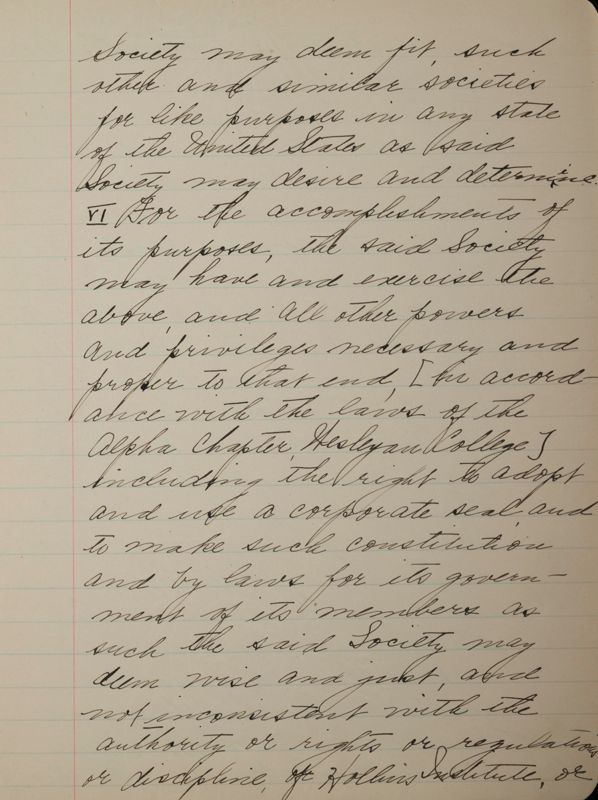 Society may deem fit, such
other and similar societies
for like purposes in any state
of the United States as said
Society may desire and determine.
VI For the accomplishments of
its purposes, the said Society
may have and exercise the
above, and all other powers
and privileges necessary and
proper to that end, [in accord-
ance with the laws of the
Alpha Chapter, Wesleyan College]
including the right to adopt
and use a corporate seal, and
to make such constitution
and by laws for its govern-
ment of its members as
such the said Society may
deem wise and just, and
not inconsistent with the
authority or rights or regulations
or discipline, of Hollins Institute, or